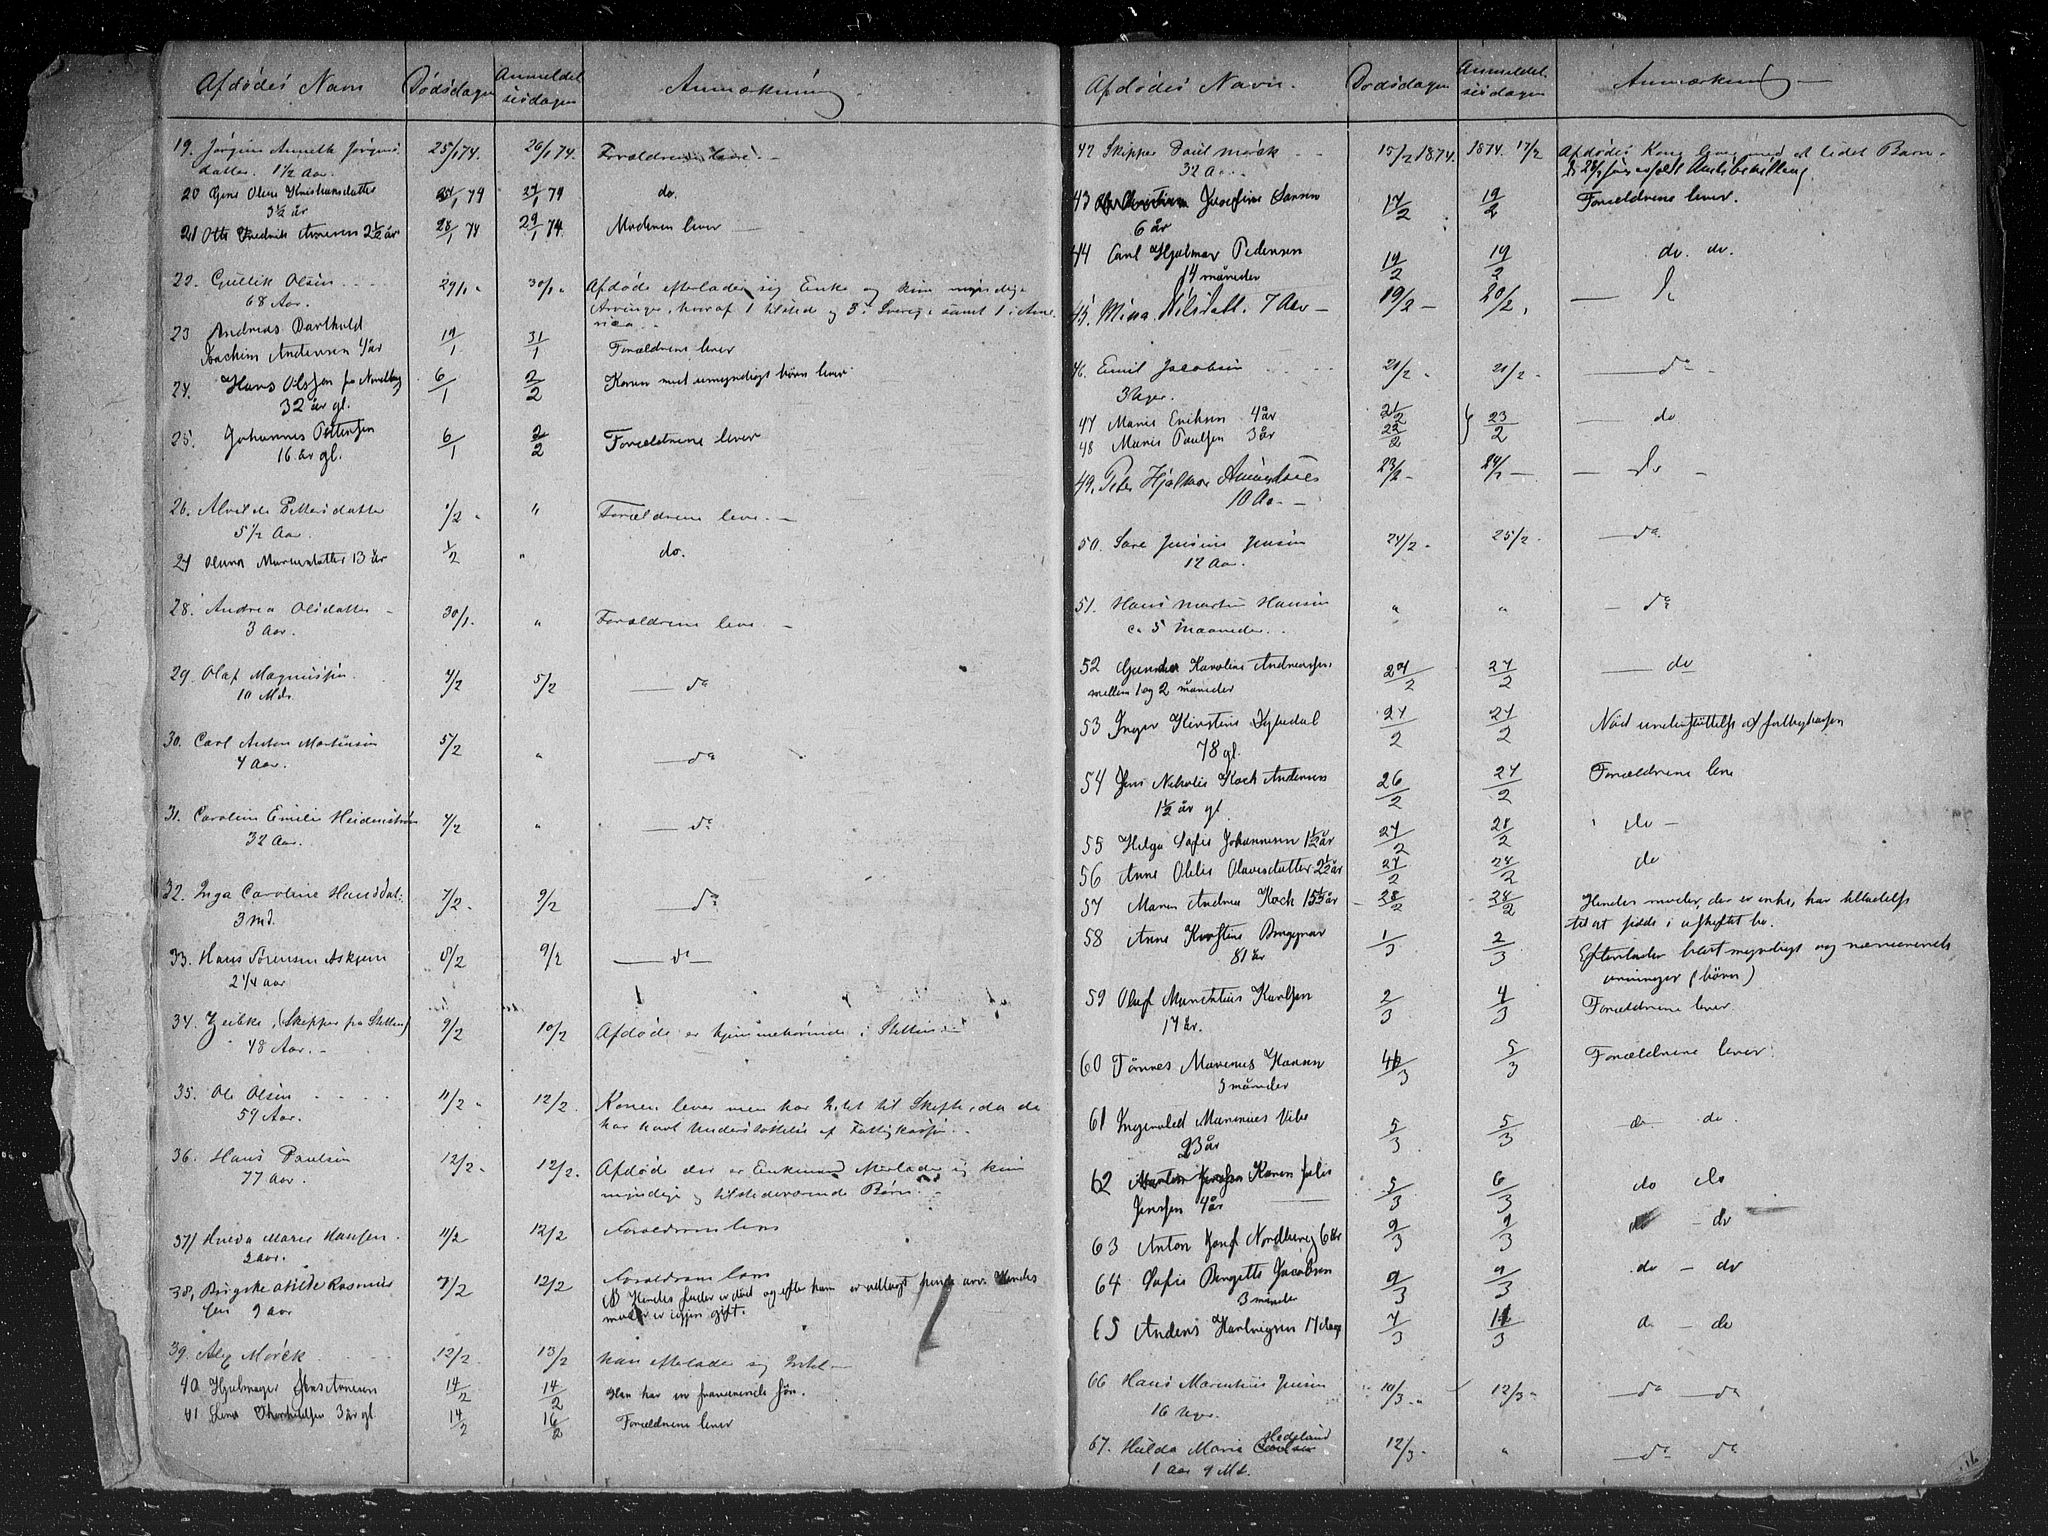 Afdødes Navn Dødsdagen Anmeldel
sesdagen Anmærkning
19. Jørgine Anneth Jørgens
datter. 1½ Aar. 25/1 74. 26/1 74. Forældrene leve. –
20 Gine Oline Kristiansdatter 27/1 74 do.
3½ år
21 Otto Fredrik Arnesen 2½ år 28/1 74 29/1 74. Moderen lever
22. Gullik Olsen 29/1 30/1 Afdøde efterlader sig Enke og kun myndige
68 Aar. Arvinger, hvoraf 1 tilsted og 3 i Sverig, samt 1 i Ame
rica
23 Andreas Barthold
Joachim Andersen 4 år 19/1 31/1 Forældrene lever
24. Hans Olsen fra Nordby 6/1 2/2 Konen med umyndigt børn lever
32 år gl.
25. Johannes Pettersen 6/1 2/2 Forældrene lever
16 år gl.
26. Alvilde Pettersdatter 1/2 " Forældrene leve. –
5 1/2 Aar.
27 Olava Mariusdatter 13 år 1/2 " do.
28. Andrea Olsdatter 30/1. " Forældrene leve. –
3 Aar.
29. Olaf Magnussen 4/2 5/2 — do
10 Mdr.
30. Carl Anton Martinsen 5/2 " — do
4 Aar.
31. Caroline Emilie Heidenstrøm 4/2 " — do
32 Aar.
32. Inga Caroline Hansdat. 7/2. 9/2 — do
3 md.
33. Hans Sørensen Askjem 8/2 9/2 — do —
2 1/4 aar
34. Zeibke, (Skipper fra Stettin) 9/2 10/2 Afdøde er hjemmehørende i Stettin. –
48 Aar. –
35. Ole Olsen 11/2 12/2. Konen lever men har Intet til Skifte, da de
59 Aar. har havt Understøttelse af Fattigkassen. –
36. Hans Paulsen 12/2. 12/2. Afdøde der er Enkemand efterlader sig kun
77 Aar. myndige og tilstedeværende Børn. –
37, Hulda Marie Hansen. 11/2 12/2 Forældrene leve
2 aar.
38, Birgitte Hilde Rasmus
sen 9 aar 7/2 12/2 Forældrene leve
NB Hendes fader er død og efter ham er udlagt hende arv. Hendes
moder er igjen gift.
39. Alex Mørck 12/2. 13/2 han efterlader sig Intet –
40 Hjalmar Jens Arnesen 14/2 14/2 Han har en fraværende søn.
41 Lina Thorkildsen 3 år gl. 14/2 16/2 Forældrene lever
Afdødes Navn. Dødsdagen Anmeldel.
sesdagen Anmærkning –
42 Skipper Paul Mørck 15/2 1874. 1874. 17/2 Afdødes Kone lever med et lidet Barn.
32 Aar.
43 Josefine Larsen 17/2 19/2 Forældrene lever.
6 år
44 Carl Hjalmar Pedersen 19/2 19/2 do. do.
14 måneder
45. Mina Nilsdatt. 7 Aar – 19/2 – 20/2, — do
46. Emil Jacobsen 21/2 21/2 — do
3 Uger.
47 Maria Eriksen 4 år 21/2 } 23/2 — do
48 Maria Paulsen 3 år 22/2
49. Peder Hjalmar Amundsen 23/2 – 24/2 — — do –
10 Aar. –
50. Sara Jensine Jensen 24/2. 25/2. — do
12 Aar.
51. Hans Martin Hansen " " — do
ca 5 Maaneder.
52 Gunda Karoline Andreassen, 27/2 27/2 — do
mellem 1 og 2 måneder
53 Inger Kirstine Dybedal 27/2 27/2 Nød understøttelse af fattigkassen
78 gl.
54 Jens Nikolai Koch Andersen 26/2 27/2 Forældrene leve
1½ år gl
55 Helga Sofie Johannesen 1½ år 27/2 28/2 do –
56 Anne Oleie Olavesdatter 2½ år 27/2 28/2 do
57 Maren Andrea Koch 15½ år – 28/2 28/2 Hendes moder, der er enke, har tilladelse
til at sidde i uskiftet bo.
58 Anne Kirstine 1/3 2/3 Efterlader blot myndigt og nærværende
81 år arvinger (børn)
59 Olaf Marentius Karlsen 2/3 4/3 Forældrene lever
17 år.
60 Tønnes Marenus Hansen 4/3 5/3 Forældrene lever.
5 måneder
61 Ingevald Marenius Vibe 5/3 5/3 do. do.
23 år
62 Karen Julie
Jenssen 4 år 5/3 6/3 do do
63 Anton Josef Nordberg 6 år 9/3 9/3 do – do
64 Sofie Bergette Jacobsen 9/3 9/3 do – do
3 måneder
65 Anders Hartvigsen 17 dage 7/3 11/3 do – do
66 Hans Marentius Jensen 10/3. 12/3. — do — do
16 Uger.
67. Hulda Marie Hedeland 12/3. " — do do
1 Aar 9 Md.